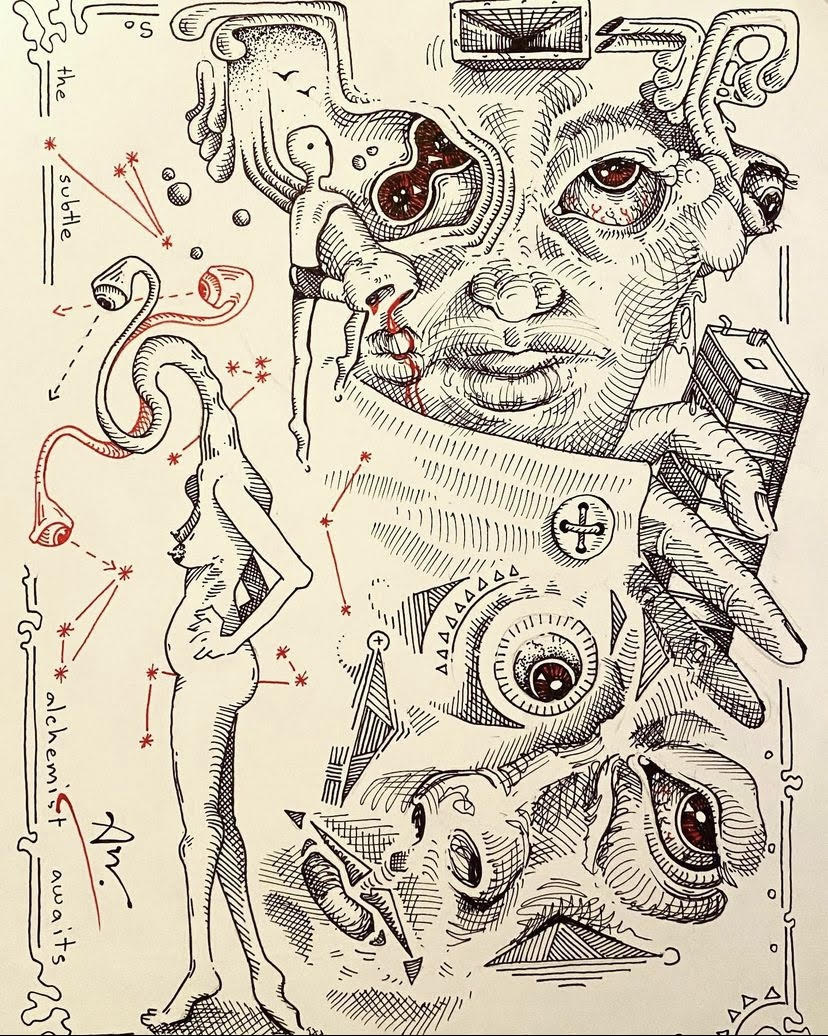 so
the subtle alchemist awaits